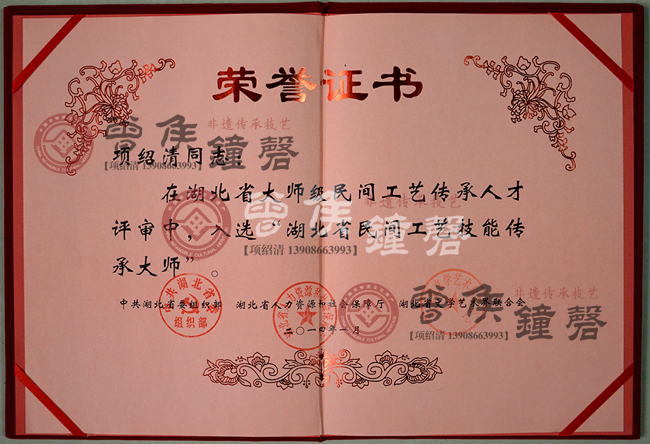 荣誉证书
非遗传承技艺
曾侯鐘磬
【项绍清 13908663993】
项绍清同志：
在湖北省大师级民间工艺传承人才
评审中，入选“湖北省民间工艺技能传
承大师”。
非遗传承技艺
曾侯鐘磬
【项绍清 13908663993】
中共湖北省委组织部 湖北省人力资源和社会保障厅 湖北省文学艺术界联合会
组织部
二〇一四年一月
非遗传承技艺
曾侯鐘磬
【项绍清 13908663993】